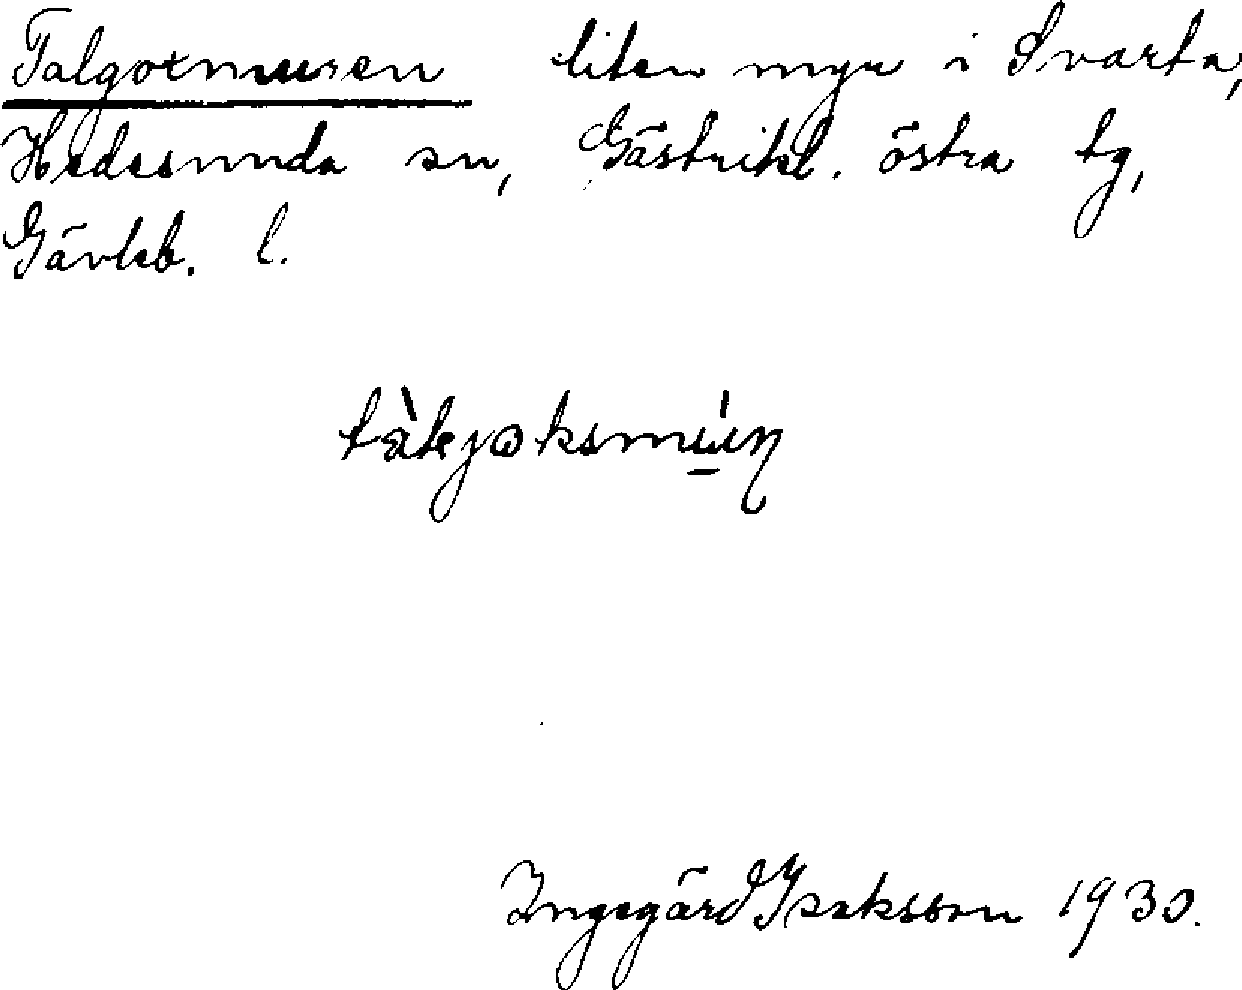 Talgoxmuren liten myr i Svarta,
Hedesunda sn, Gästrikl. östra tg,
Gävleb. l.
Ingegärd Isaksson 1930.